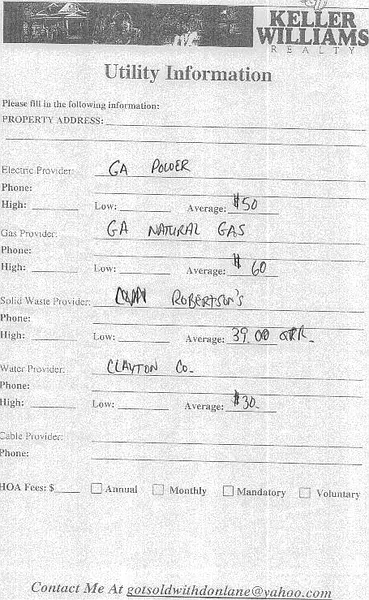 KELLER
WILLIAMS
REALTY
Utility Information
Please fill in the following information:
PROPERTY ADDRESS:
Electric Provider: GA POWER
Phone:
High: Low: Average: $50
Gas Provider: GA NATURAL GAS
Phone:
High: Low: Average: $60
Solid Waste Provider: ROBERTSON'S
Phone:
High: Low: Average: 39.00 QTR.
Water Provider: CLAYTON CO.
Phone:
High: Low: Average: $30.
Cable Provider:
Phone:
HOA Fees: $ Annual Monthly Mandatory Voluntary
Contact Me At gotsoldwithdonlane@yahoo.com